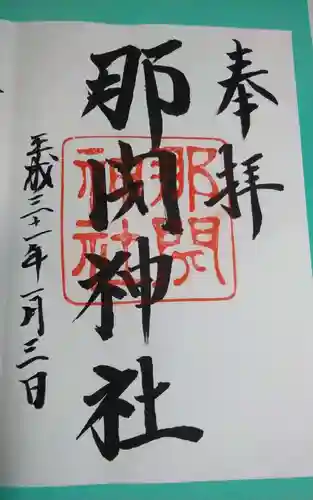 奉拝
那閇神社
那閇神社
平成三十一年一月三日